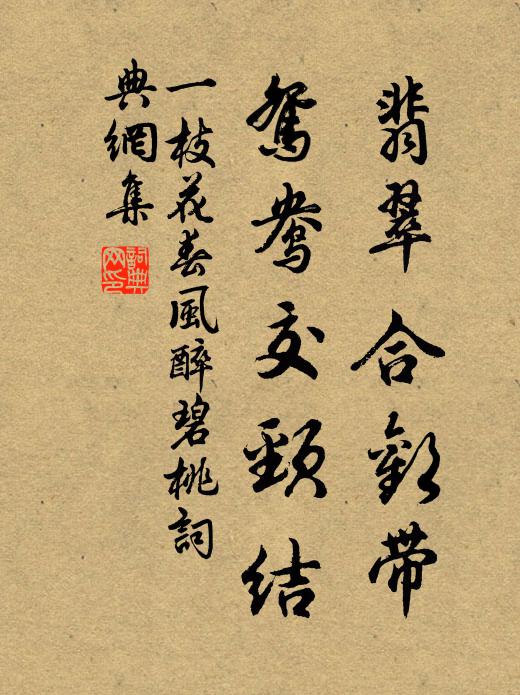 翡翠合歡带
鴛鴦交頸結
一枝花春風醉碧桃詞
典網集
詞典
网印